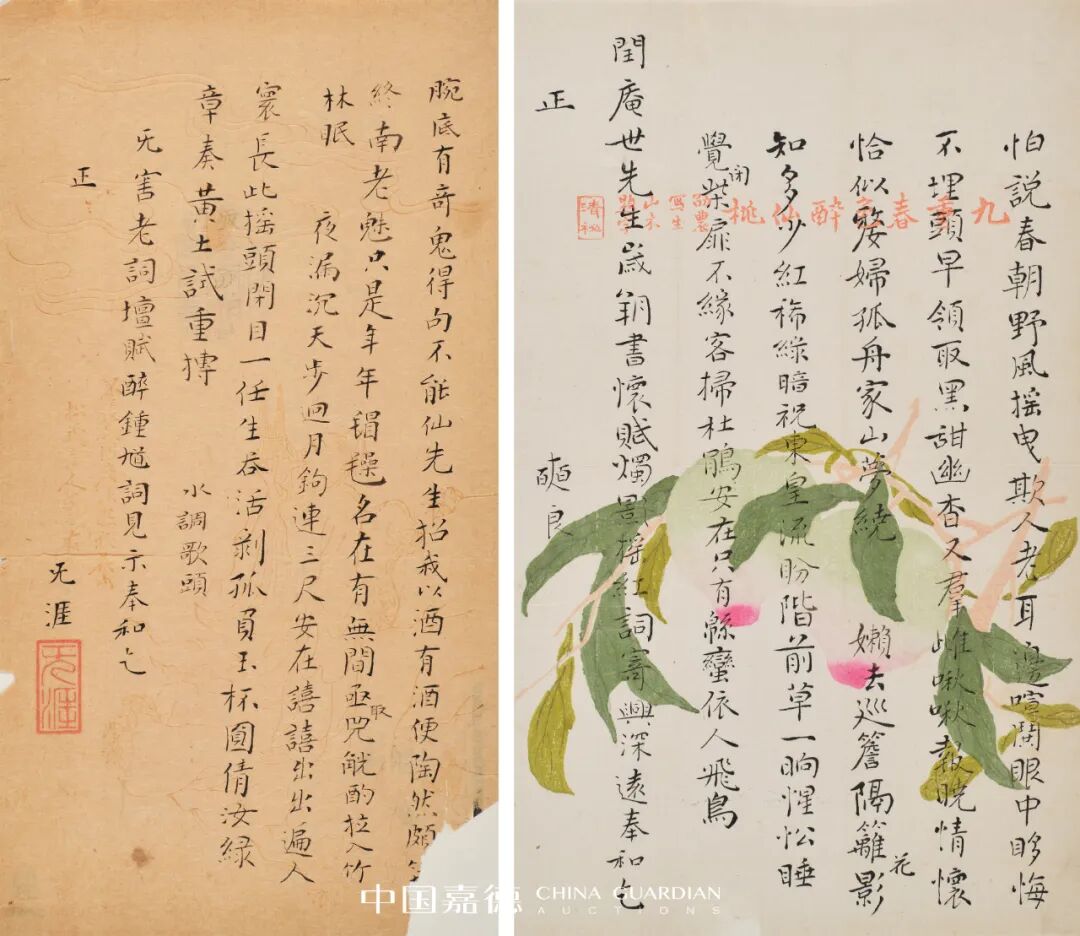 腕底有奇鬼得句不能仙先生招我以酒有酒便陶然頗
終南老魅只是年年䅈䅵名在有無間亟取兕觥酌拉入竹
林眠
夜漏沉天步迴月鉤連三尺安在譆譆出出遍人
寰長此搖頭閉目一任生吞活剥孤負玉杯圓倩汝綠
章奏黃土試重摶
水調歌頭
旡害老詞壇賦醉鍾馗詞見示奉和乞
正
旡涯
旡涯
怕說春朝野風搖曳欺人老耳邊喧鬧眼中眵悔
不埋頭早領取黑甜幽杳又羣雌啾啾報曉情懷
恰似嫠婦孤舟家山夢繞
嬾去巡簷隔籬花影
知多少紅稀綠暗祝東皇流盼階前草一晌惺忪睡
覺閉柴扉不緣客掃杜鵑安在只有緜蠻依人飛鳥
閏庵世先生歲朝書懷賦燭影搖紅詞寄興深遠奉和乞
正
良
九重春色醉仙桃
寫生
清祕
中国嘉德 CHINA GUARDIAN
AUCTIONS